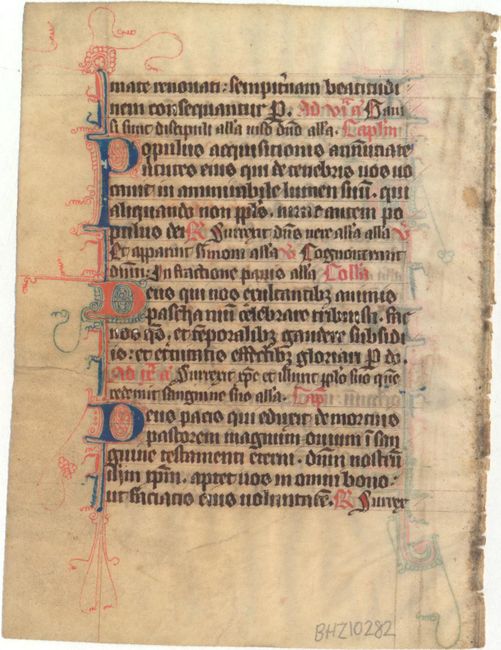 mate renouati: sempit'nam beatitudi
nem consequantur P. Ad vi a Gaui
si sunt discipuli alla uiso dno alla. Caplm
Populus acquisitionis annuciate
uirtutes eius qui de tenebris uos uo
cauit in ammirabile lumen suu. qui
aliquando non ppls. nunc autem po
pulus dei R Surrexit dns uere alla alla V
Et apparuit simoni alla V Cognouerunt
dnm. In fractione panis alla Colla
Deus qui nos exultantibz animis
pascha tuu celebrare tribuisti. fac
nos qs. et teporalibz gaudere subsidi
is. et eternitatis effectibz gloriari P d
Ad a Surrexit xpc et illuxit pplo suo que
redemit sanguine suo alla. Cap
Deus pacis qui eduxit de mortuis
pastorem magnum ouium i san
guine testamenti eterni. dnm nostru
ihm xpm. aptet uos in omni bono.
ut faciatis eius uoluntate. R Surrex
BHZ10282